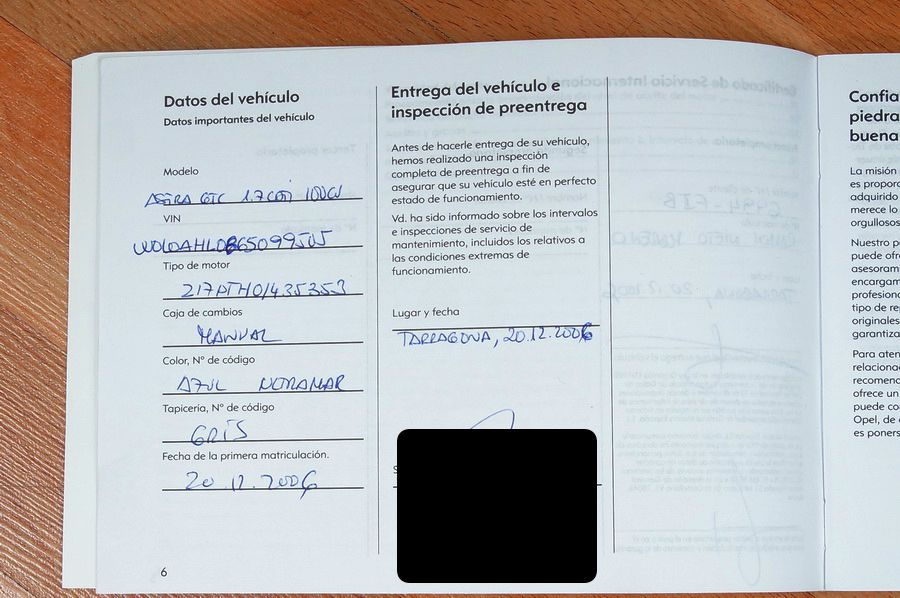 Datos del vehículo
Datos importantes del vehículo
Modelo
ASTRA GTC 1.7CDTI 100CV
VIN
W0L0AHL0865099505
Tipo de motor
Caja de cambios
MANUAL
Color, Nº de código
AZUL
Tapicería, Nº de código
GRIS
Fecha de la primera matriculación.
20.12.2006
6
Entrega del vehículo e
inspección de preentrega
Antes de hacerle entrega de su vehículo,
hemos realizado una inspección
completa de preentrega a fin de
asegurar que su vehículo esté en perfecto
estado de funcionamiento.
Vd. ha sido informado sobre los intervalos
e inspecciones de servicio de
mantenimiento, incluidos los relativos a
las condiciones extremas de
funcionamiento.
Lugar y fecha
TARRAGONA, 20.12.2006
Confia
piedra
buena
La misión
es propor
adquirido
merece lo
orgullosos
Nuestro p
puede ofre
asesoram
encargam
profesion
tipo de re
originales
garantiza
Para aten
relaciona
recomend
ofrece un
puede co
Opel, de
es poners